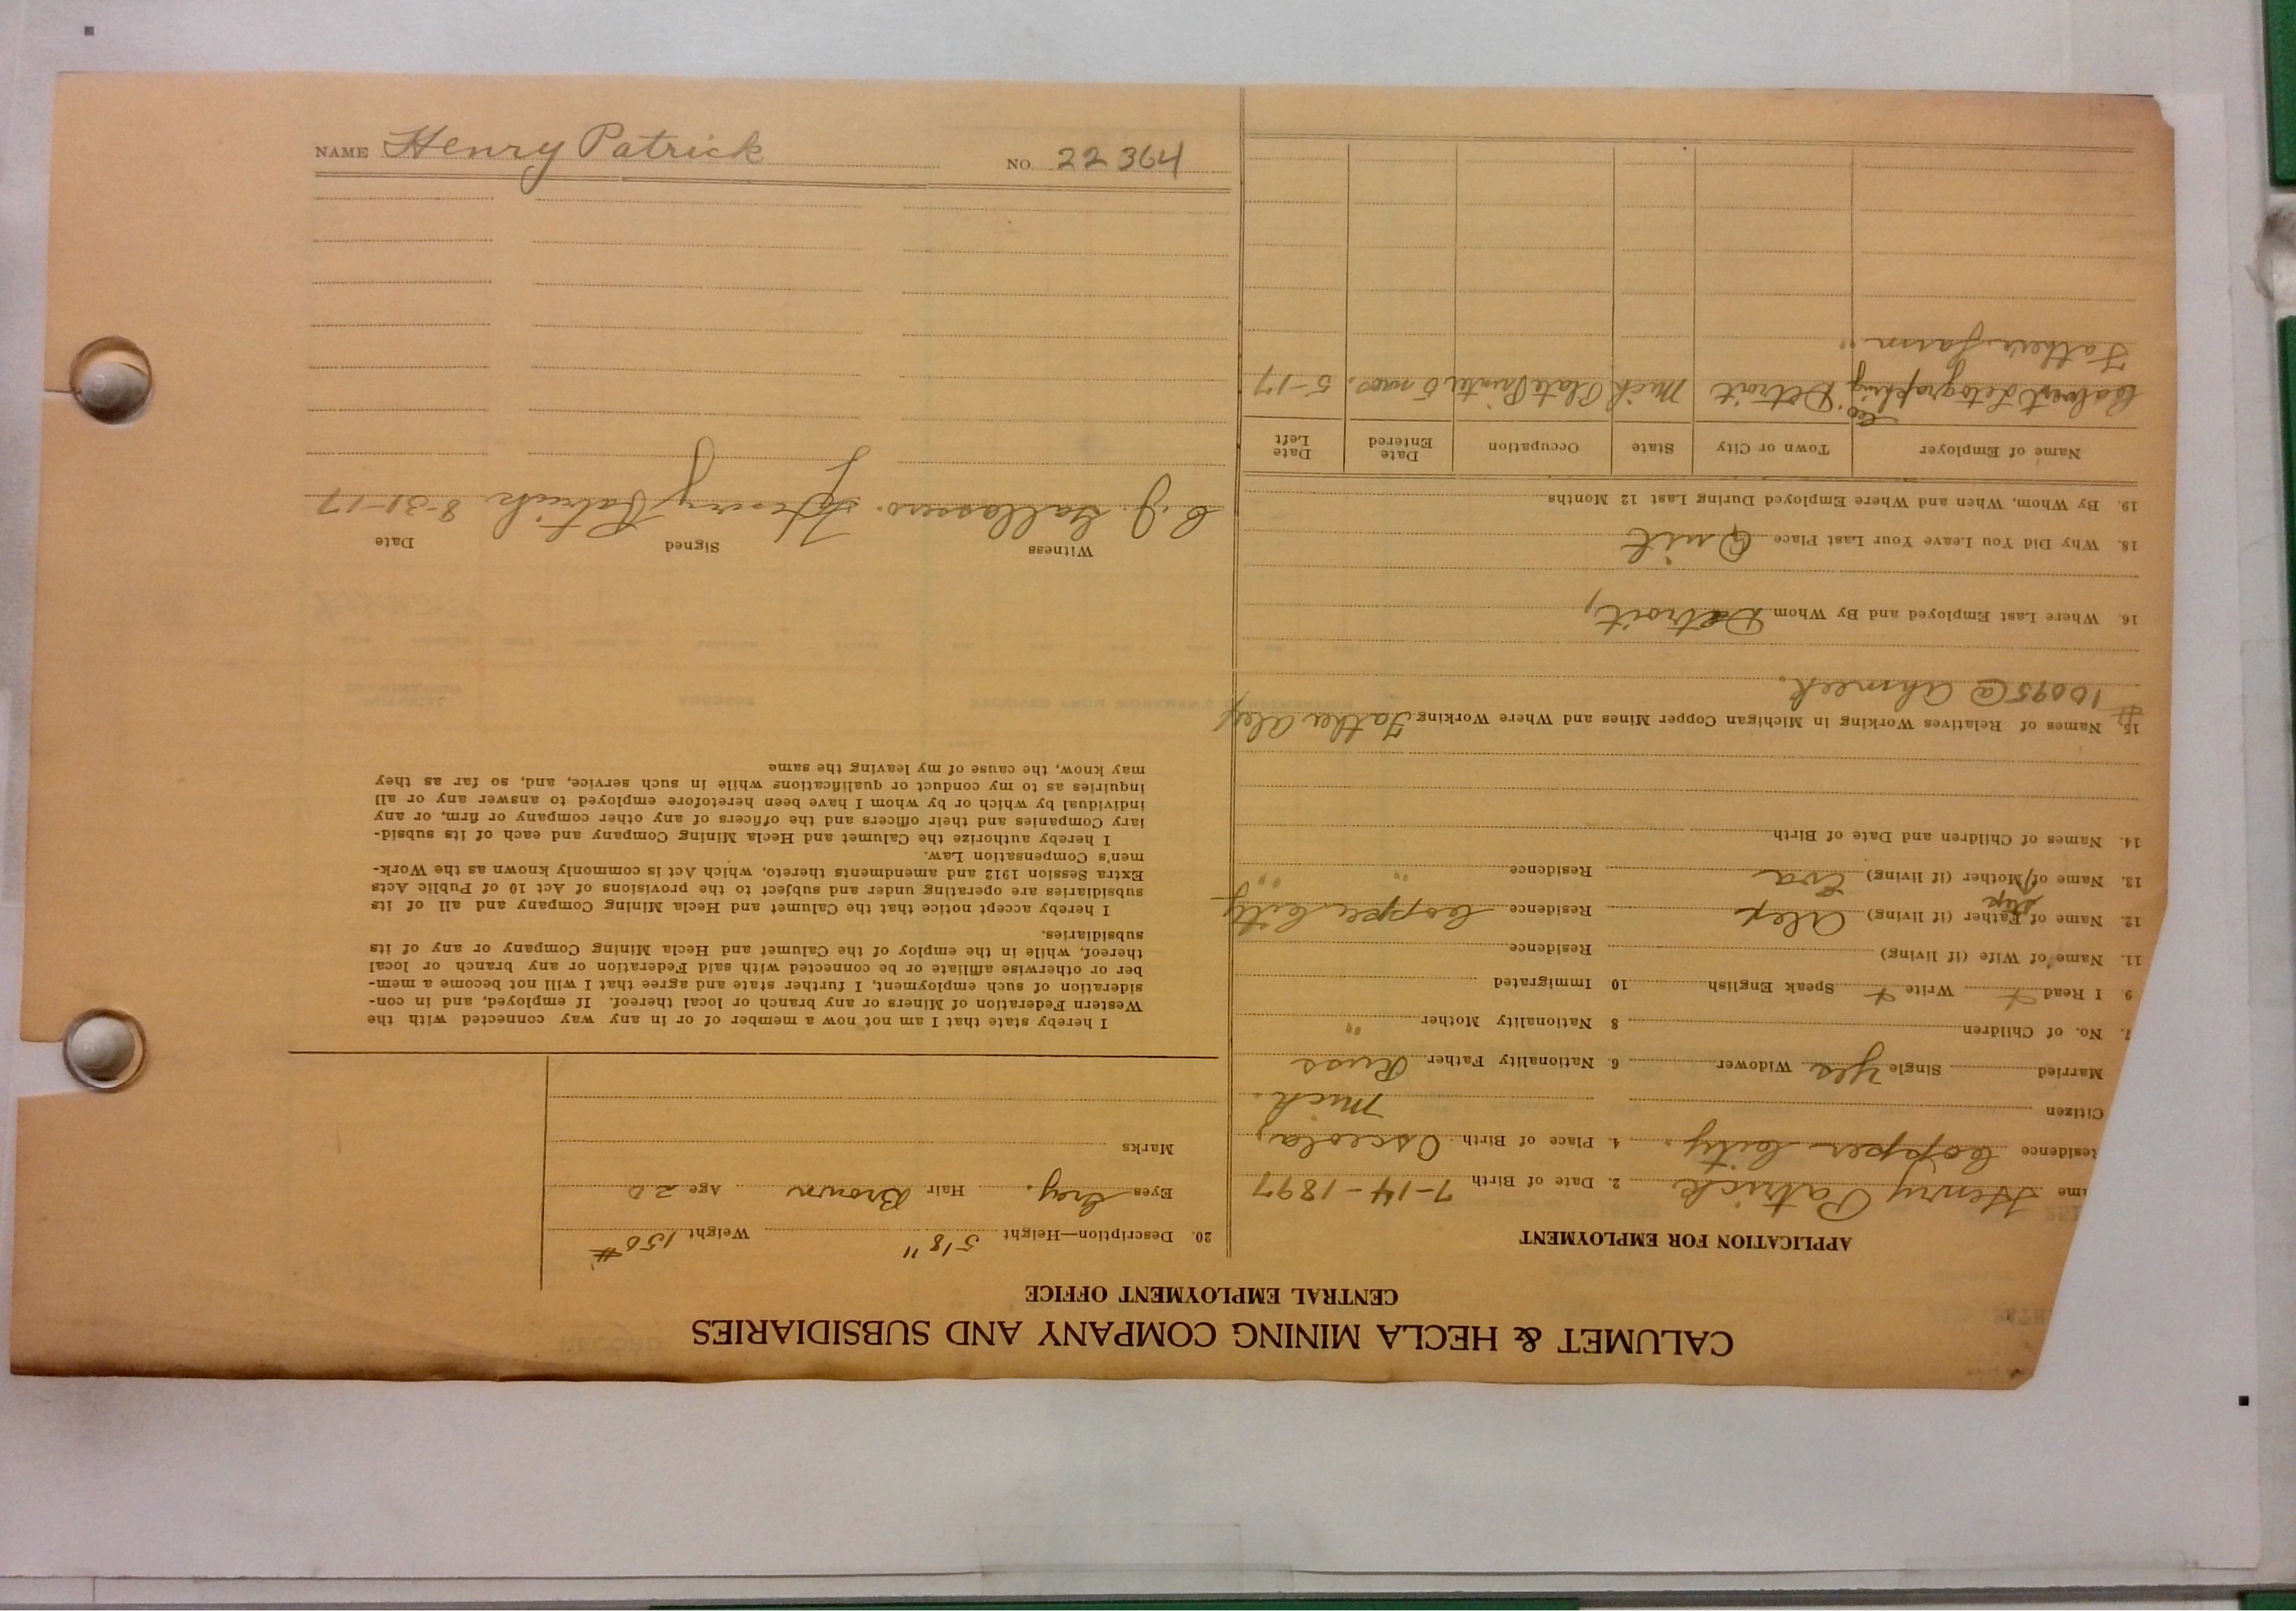 NAME Henry Patrick NO. 22364
CALUMET & HECLA MINING COMPANY AND SUBSIDIARIES
CENTRAL EMPLOYMENT OFFICE
APPLICATION FOR EMPLOYMENT
ame Henry Patrick 2. Date of Birth 7-14-1897
esidence Copper City. 4. Place of Birth Osceola,
Citizen Mich.
Married Single Yes Widower 6. Nationality Father Russ
7. No. of Children 8 Nationality Mother " "
9. I Read + Write + Speak English 10 Immigrated
11. Name of Wife (if living) Residence
12. Name of Step Father (if living) Alex Residence Copper City
13. Name of Mother (if living) Eva Residence " " " "
14. Names of Children and Date of Birth
15. Names of Relatives Working in Michigan Copper Mines and Where Working Father Alex
# 10095 @ Ahmeek.
16. Where Last Employed and By Whom Detroit,
18. Why Did You Leave Your Last Place Quit
19. By Whom, When and Where Employed During Last 12 Months
Name of Employer Town or City State Occupation Date Entered Date Left
Calvert Litographing Co. Detroit Detroit Mich Plate Printer 5 mos. 5-17
Father's Farm "
20. Description—Height 5'8" Weight 150#
Eyes Grey. Hair Brown Age 20
Marks
I hereby state that I am not now a member of or in any way connected with the
Western Federation of Miners or any branch or local thereof. If employed, and in con-
sideration of such employment, I further state and agree that I will not become a mem-
ber or otherwise affiliate or be connected with said Federation or any branch or local
thereof, while in the employ of the Calumet and Hecla Mining Company or any of its
subsidiaries.
I hereby accept notice that the Calumet and Hecla Mining Company and all of its
subsidiaries are operating under and subject to the provisions of Act 10 of Public Acts
Extra Session 1912 and amendments thereto, which Act is commonly known as the Work-
men's Compensation Law.
I hereby authorize the Calumet and Hecla Mining Company and each of its subsid-
iary Companies and their officers and the officers of any other company or firm, or any
individual by which or by whom I have been heretofore employed to answer any or all
inquiries as to my conduct or qualifications while in such service, and, so far as they
may know, the cause of my leaving the same
Witness Signed Date
Henry Patrick 8-31-17